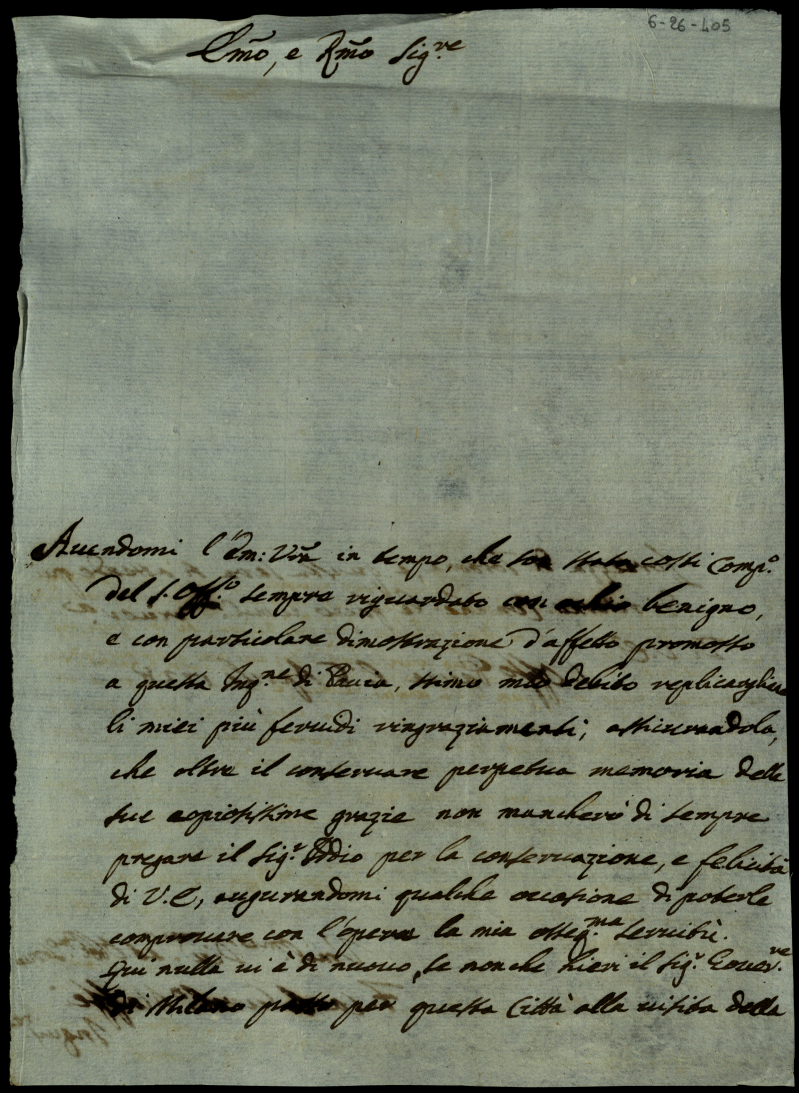 6-26-405
Emo, e Rmo Sig.re
Auendomi l'Em: Vra in tempo, che son stato costi Comp.o
del S. Off.o sempre riguardato con ochio benigno,
e con particolare dimostrazione d'affetto promosso
a questa Inq.ne di Pauia, stimo mio debito replicargliene
li miei più feruidi ringraziamenti; assicurandola,
che oltre il conseruare perpetua memoria delle
sue copiosissime grazie non mancherò di sempre
pregare il Sig.r Iddio per la conseruazione, e felicità
di V. E., augurandomi qualche occasione di poterle
comprouare con l'opera la mia osseq.ma seruitù.
Qui nulla ui è di nuouo, se non che hieri il Sig.r Gouer.re
di Milano passò per questa Città alla uisita della